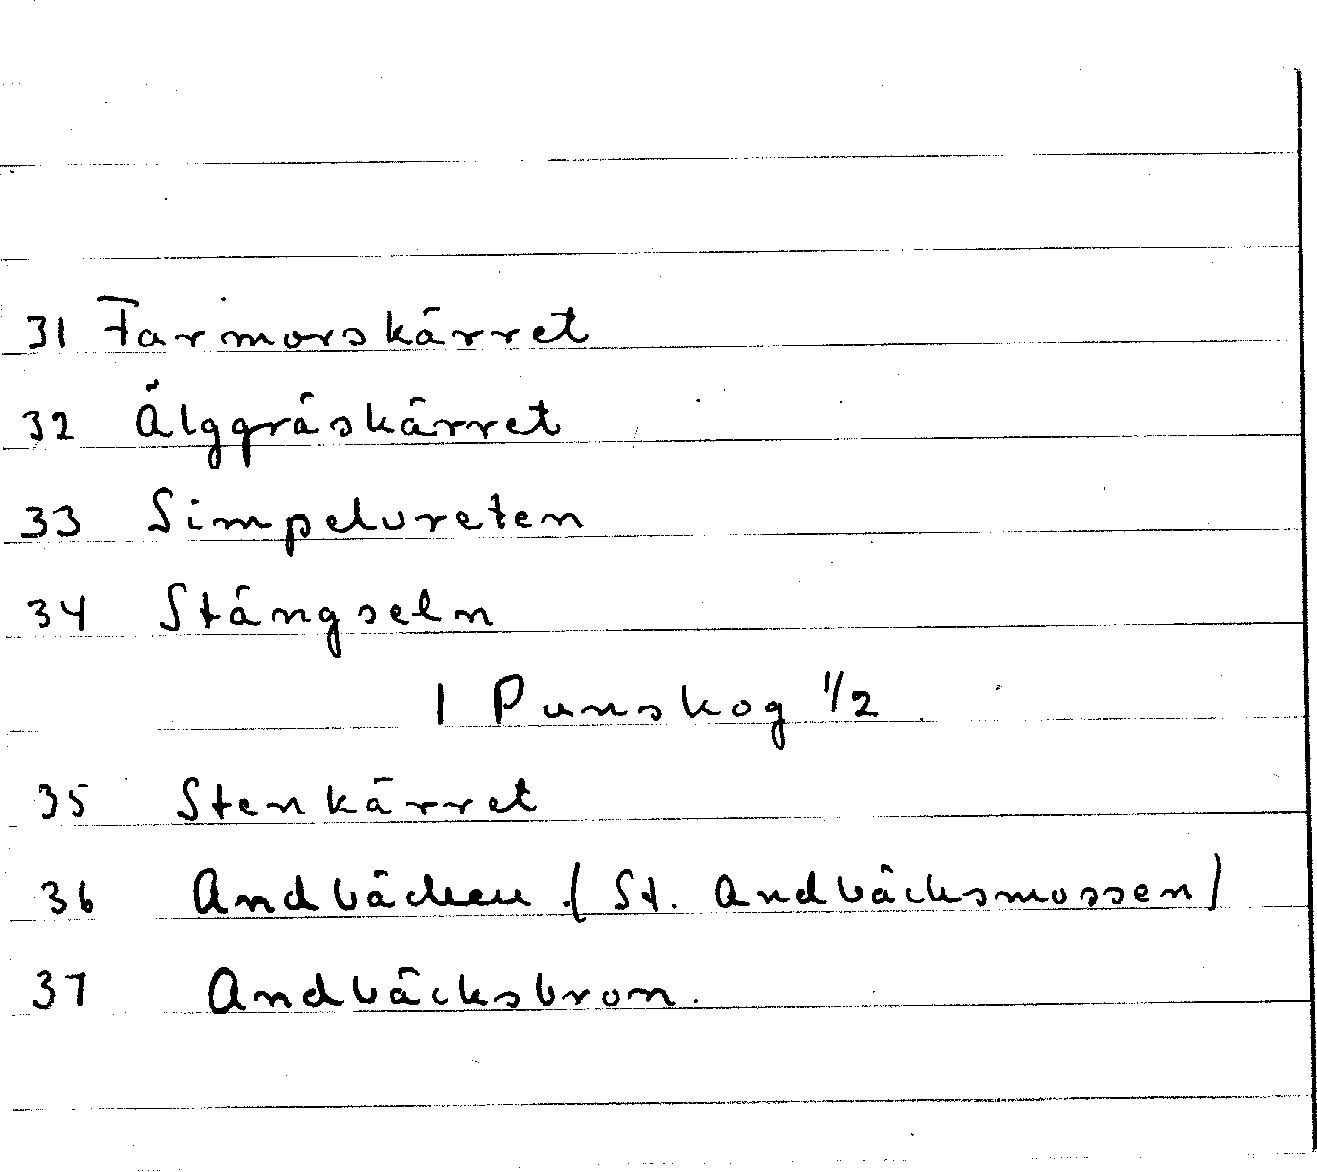 31 Farmorskärret
32 Älggräskärret
33 Simpelvreten
34 Stängseln
I Punskog 1/2
35 Stenkärret
36 Andbäcken (St. Andbäcksmossen)
37 Andbäcksbron.